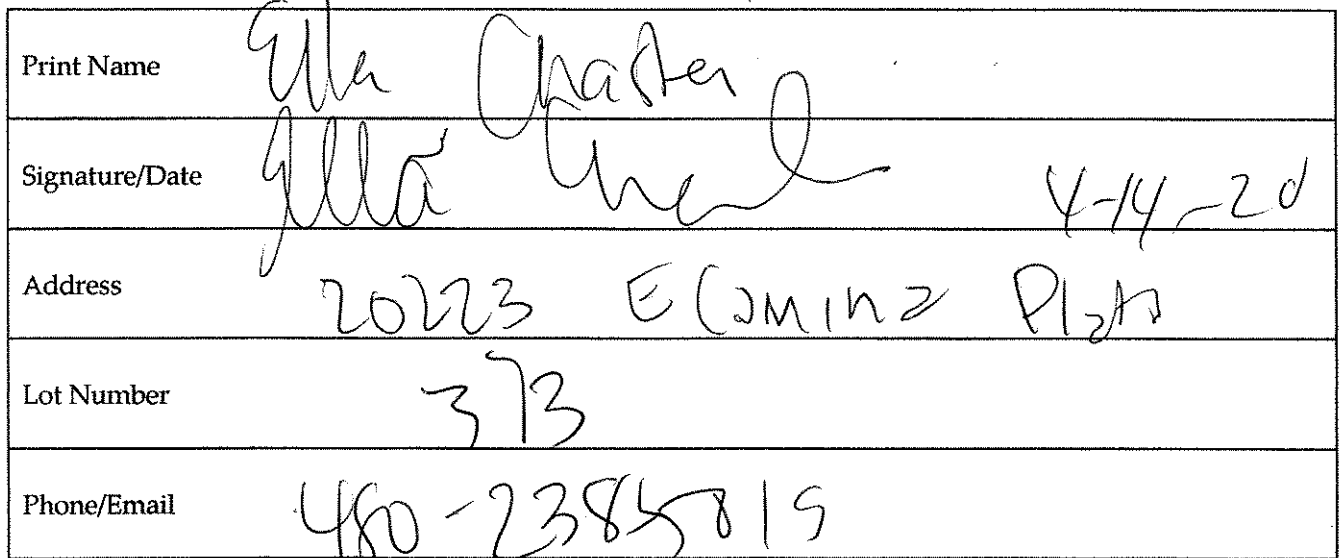 Print Name Ella Chaster
Signature/Date Ella 4-14-20
Address 20223 E Camina Plata
Lot Number 373
Phone/Email 480-238